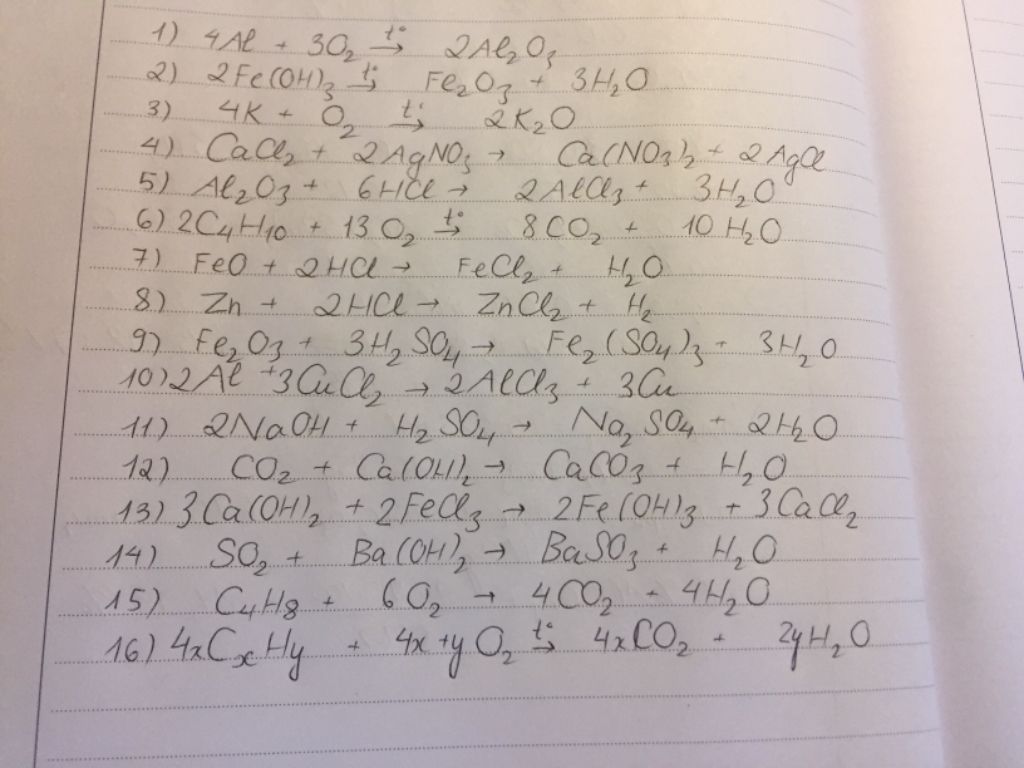 1) 4Al + 3O₂ →(t°) 2Al₂O₃
2) 2Fe(OH)₃ →(t°) Fe₂O₃ + 3H₂O
3) 4K + O₂ →(t°) 2K₂O
4) CaCl₂ + 2AgNO₃ → Ca(NO₃)₂ + 2AgCl
5) Al₂O₃ + 6HCl → 2AlCl₃ + 3H₂O
6) 2C₄H₁₀ + 13O₂ →(t°) 8CO₂ + 10H₂O
7) FeO + 2HCl → FeCl₂ + H₂O
8) Zn + 2HCl → ZnCl₂ + H₂
9) Fe₂O₃ + 3H₂SO₄ → Fe₂(SO₄)₃ + 3H₂O
10) 2Al + 3CuCl₂ → 2AlCl₃ + 3Cu
11) 2NaOH + H₂SO₄ → Na₂SO₄ + 2H₂O
12) CO₂ + Ca(OH)₂ → CaCO₃ + H₂O
13) 3Ca(OH)₂ + 2FeCl₃ → 2Fe(OH)₃ + 3CaCl₂
14) SO₂ + Ba(OH)₂ → BaSO₃ + H₂O
15) C₄H₈ + 6O₂ → 4CO₂ + 4H₂O
16) 4xCₓHy + 4x+yO₂ →(t°) 4xCO₂ + 2yH₂O